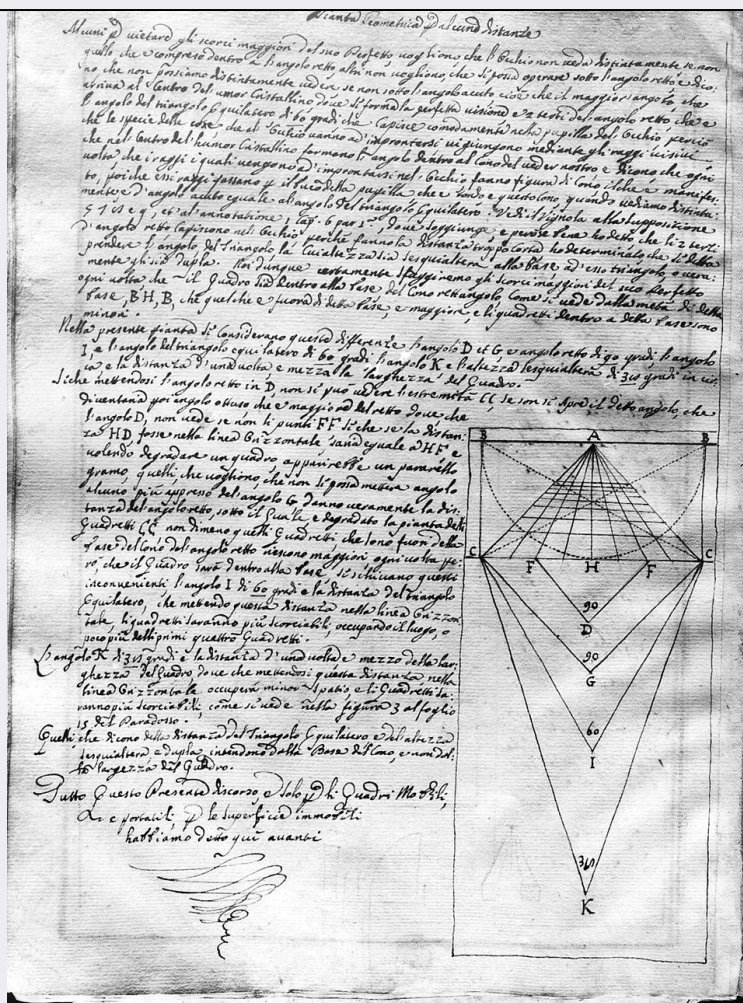 Pianta Geometrica p alcune distanze
Alcuni p vietare gli scorci maggiori del suo Perfetto vogliono, che l'Occhio non veda distintamente se non
quello che è compreso dentro à l'angolo retto altri non vogliono, che si possa operare sotto l'angolo retto e dico:
no che non possiamo distintamente vedere se non sotto l'angolo acuto cioè che il maggior angolo che
arriva al Centro del'umor Cristallino dove si forma la perfetta visione è 2 terzi del angolo retto che è
l'angolo del triangolo Equilatero di 60 gradi che Capisce comodamente nella pupilla del Occhio perciò
che le specie delle cose che al Occhio vanno ad improntarsi vi giungono mediante gli raggi visivi
che nel Centro del'humor Cristallino formano l'angolo dentro al Cono del veder nostro e dicono che ogni
volta che i raggi i quali vengono ad improntarsi nel Occhio fanno figura di Cono
to, poiche essi raggi passano p il buco della pupilla che è tondo e questo cono, quando vediamo distinta:
mente è d'angolo acuto eguale al angolo del triangolo Equilatero. Vedi il Vignola alla supposizione
et al'annotatione cap: 6 par dove soggiunge e perciò bene ho detto che li 2 terzi
d'angolo retto Capiscono nel Occhio perche fanno la distanza troppo corta ho determinato, che si debba
prendere l'angolo del Triangolo, la Cui altezza sia sesquialtera alla base ad esso triangolo, o vera:
mente gli sia dupla. Noi dunque certamente sfuggiremo gli scorci maggiori del suo Perfetto
ogni volta che il Quadro sia dentro alla base del Cono rettangolo Come si vede dalla metà di detta
base, B, H, B, che quel che è fuora di detta base è maggiore, e li quadretti dentro a detta base sono
minori.
Nella presente pianta si Considerano queste differenze l'angolo D et G, è angolo retto di 90 gradi l'angolo
I, è l'angolo del triangolo equilatero di 60 gradi l'angolo K è l'altezza sesquialtera di gradi in cir
ca è la distanza d'una volta e mezza la larghezza del Quadro.
Siche mettendosi l'angolo retto in D, non si può vedere l'estremità CC, se non si Apre il detto angolo, che
diventaria poi angolo ottuso che è maggiore del retto dove che
l'angolo D, non vede se non li punti FF si che se la distan:
za HD, fosse nella linea Orizzontale saria eguale à HF e
volendo degradare un quadro apparirebbe un paralello
gramo, quelli, che vogliono, che non si possa mettere angolo
alcuno più appreso del angolo G danno veramente la dis:
tanza del angolo retto, sotto il quale, è degradato la pianta delli
Quadretti CC non dimeno quelli Quadretti che sono fuori della
base del Cono del angolo retto riescono maggiori ogni volta pe:
rò, che il Quadro sarà dentro alla base si schivano questi
inconvenienti l'angolo I di 60 gradi è la distanza del triangolo
Equilatero, che mettendo questa distanza nella linea Orizzon
tale, li quadretti saranno più scorciabili, occupando il luogo, o
poco più delli primi quattro Quadretti.
L'angolo K di gradi è la distanza d'una volta e mezzo della lar:
ghezza del Quadro, dove che mettendosi questa distanza nella
linea Orizzontale occuperà minor spatio e li Quadretti sa:
ranno più scorciabili, come si vede nella figura 3 al foglio
15 del Paradosso.
Quelli, che dicono della distanza del Triangolo Equilatero e del'altezza
sesquialtera o dupla, intendono dalla Base del Cono, e non del:
la largezza del Quadro.
Tutto Questo Presente discorso, è solo p li Quadri Mobili,
e portatili p le superficie immobili
habbiamo detto qui avanti
B A B
C F H F C
90
D
90
G
60
I
K